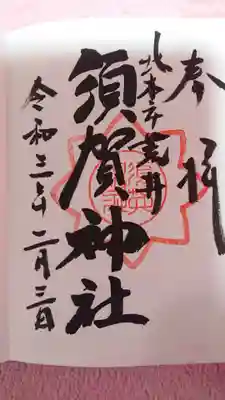 奉拝
北本市荒井
須賀神社
令和三年二月三日